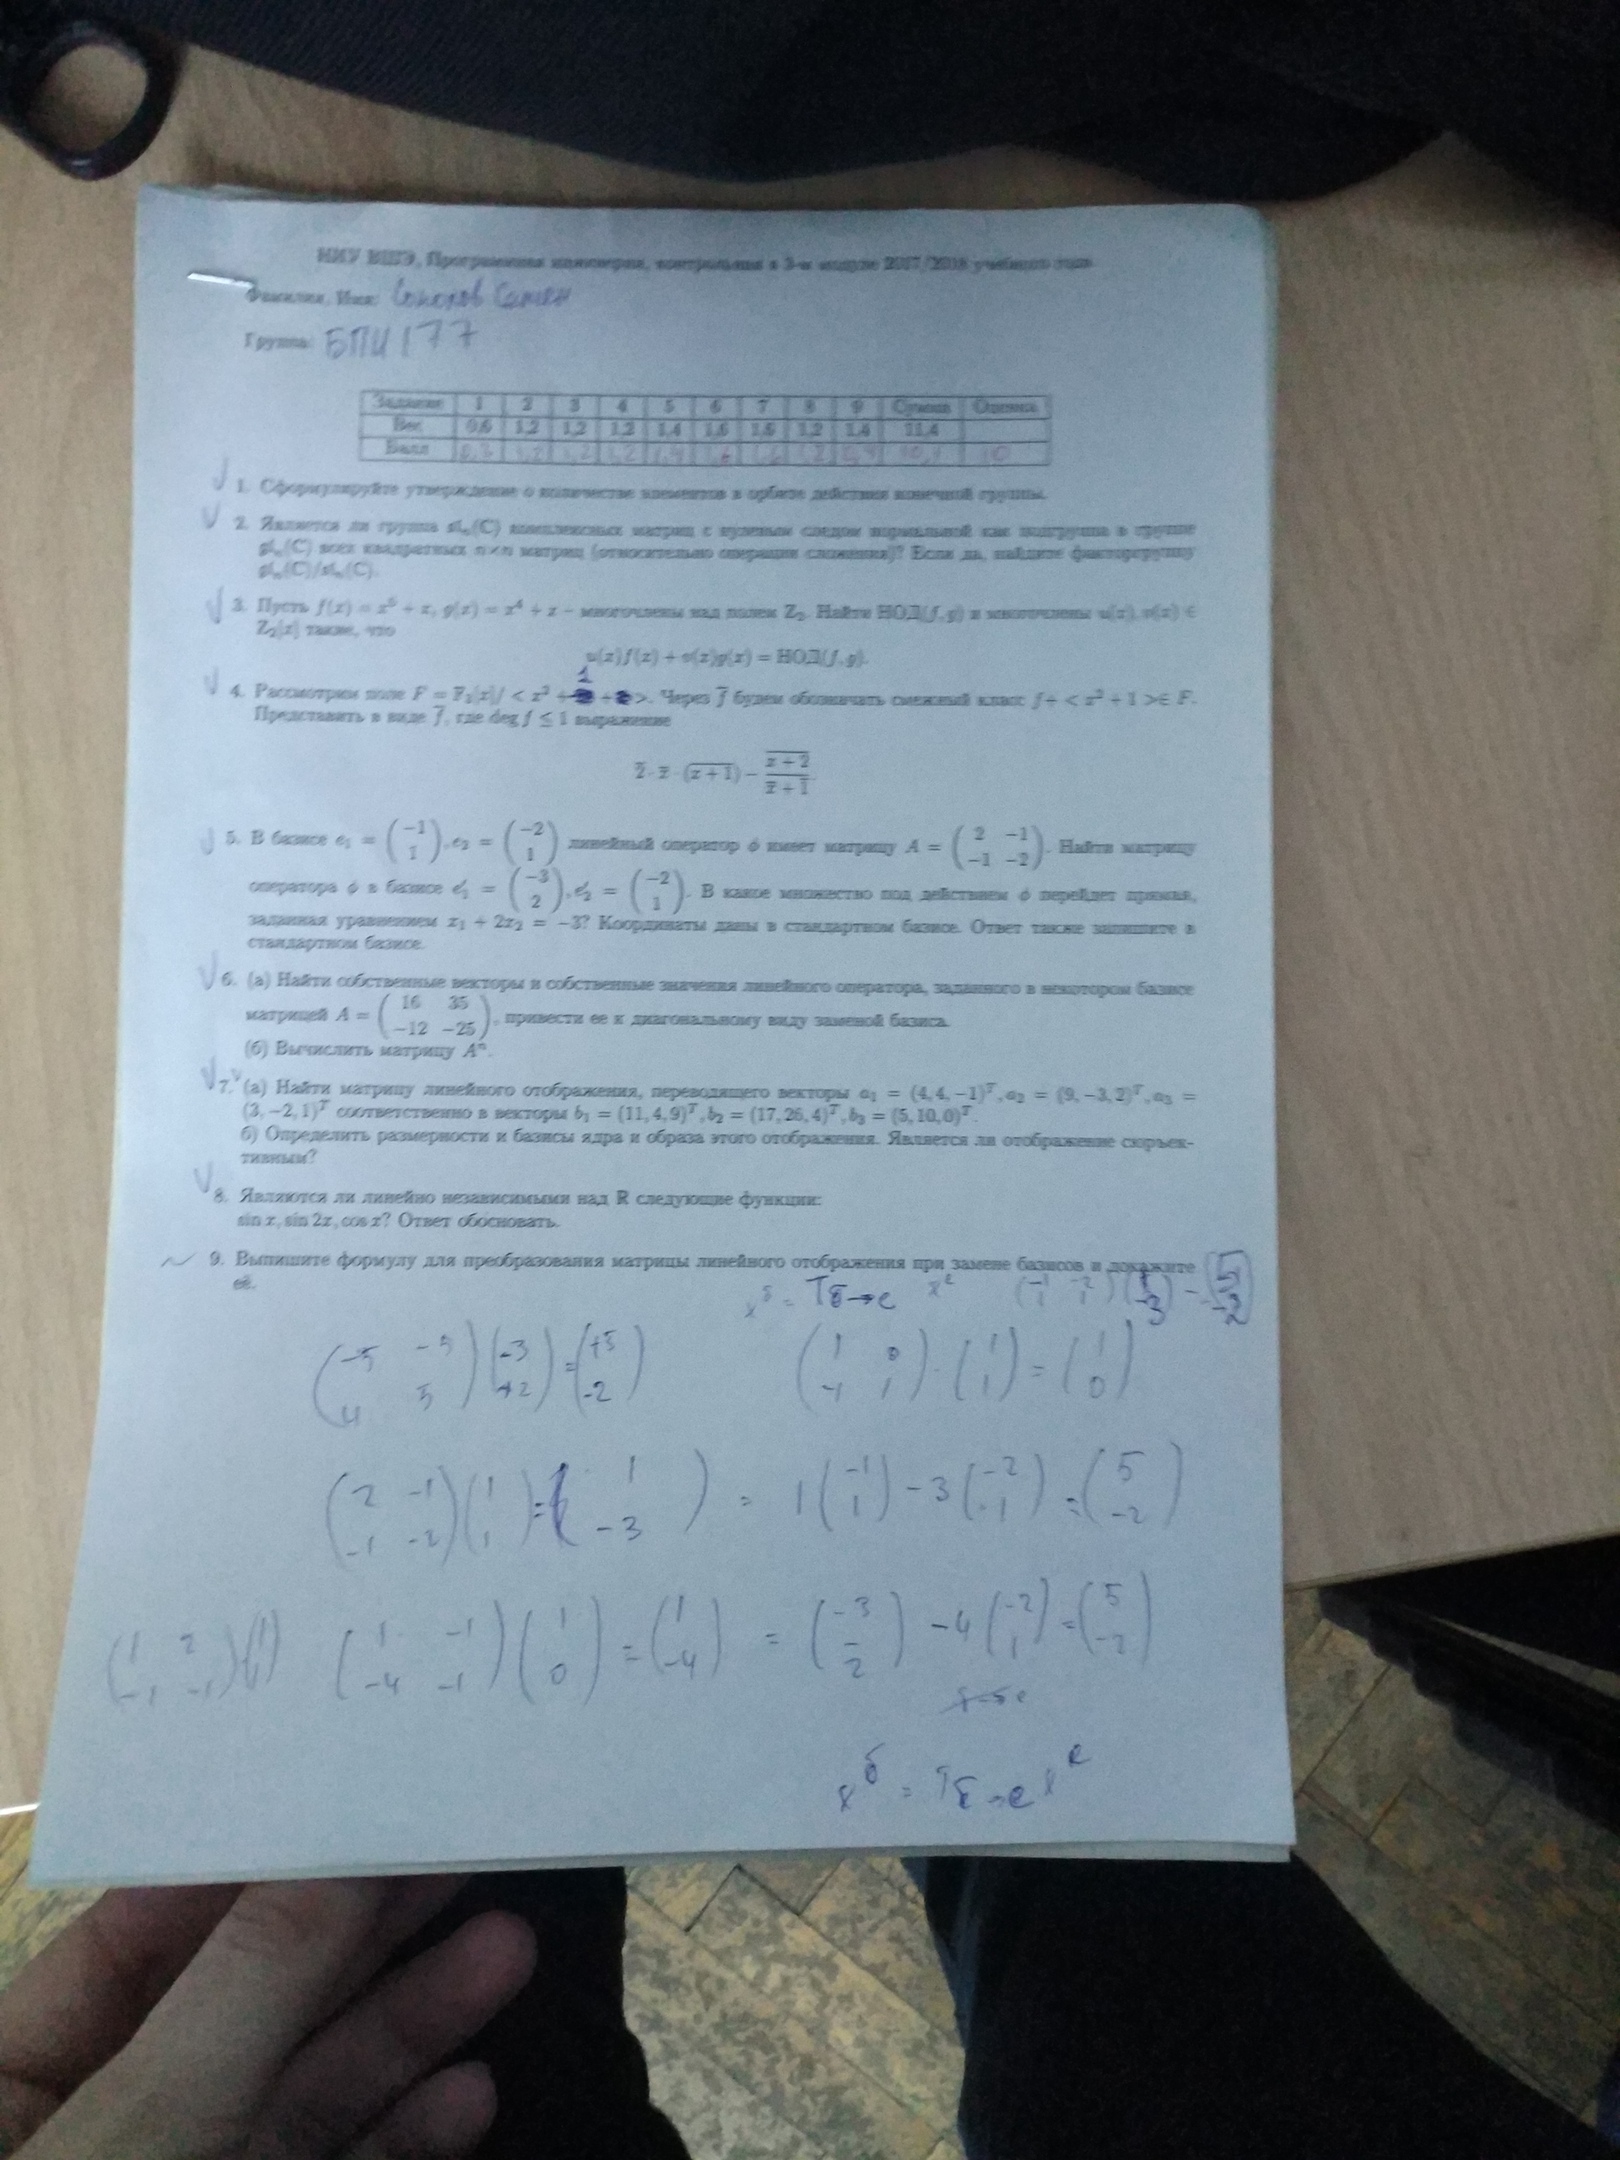 НИУ ВШЭ, Программная инженерия, контрольная в 3-м модуле 2017/2018 учебного года
Фамилия, Имя:
Группа: БПИ177
Задание 1 2 3 4 5 6 7 8 9 Сумма Оценка
Вес 0,6 1,2 1,2 1,2 1,4 1,6 1,6 1,2 1,4 11,4
Балл 1,2 1,2 1,2 1,4 1,6 1,6 1,2 10
1. Сформулируйте утверждение о количестве элементов в орбите действия конечной группы.
2. Является ли группа sl_n(C) комплексных матриц с нулевым следом нормальной как подгруппа в группе
gl_n(C) всех квадратных n×n матриц (относительно операции сложения)? Если да, найдите факторгруппу
gl_n(C)/sl_n(C).
3. Пусть f(x) = x⁵ + x, g(x) = x⁴ + x – многочлены над полем Z₂. Найти НОД(f, g) и многочлены u(x), v(x) ∈
Z₂[x] такие, что
u(x)f(x) + v(x)g(x) = НОД(f, g).
1
4. Рассмотрим поле F = F₃[x]/ < x² + >. Через f̅ будем обозначать смежный класс f+ < x² + 1 >∈ F.
Представить в виде f̅, где deg f ≤ 1 выражение
2̅ · x̅ · (x+1) − x+2
x̅ + 1̅
5. В базисе e₁ = (−1 1), e₂ = (−2 1) линейный оператор ϕ имеет матрицу A = (2 −1 −1 −2). Найти матрицу
оператора ϕ в базисе e′₁ = (−3 2), e′₂ = (−2 1). В какое множество под действием ϕ перейдет прямая,
заданная уравнением x₁ + 2x₂ = −3? Координаты даны в стандартном базисе. Ответ также запишите в
стандартном базисе.
6. (а) Найти собственные векторы и собственные значения линейного оператора, заданного в некотором базисе
матрицей A = (16 35 −12 −25), привести ее к диагональному виду заменой базиса.
(б) Вычислить матрицу Aⁿ.
7. (а) Найти матрицу линейного отображения, переводящего векторы a₁ = (4, 4, −1)ᵀ, a₂ = (9, −3, 2)ᵀ, a₃ =
(3, −2, 1)ᵀ соответственно в векторы b₁ = (11, 4, 9)ᵀ, b₂ = (17, 26, 4)ᵀ, b₃ = (5, 10, 0)ᵀ.
б) Определить размерности и базисы ядра и образа этого отображения. Является ли отображение сюръек-
тивным?
8. Являются ли линейно независимыми над R следующие функции:
sin x, sin 2x, cos x? Ответ обосновать.
9. Выпишите формулу для преобразования матрицы линейного отображения при замене базисов и докажите
её.
x^б = T б→e x^e (−1 −2 1 1)(1 −3) = (5 −2)
(−5 −5 4 5)(−3 +2) = (+5 −2) (1 0 −1 1) · (1 1) = (1 0)
(2 −1 −1 −2)(1 1) = (1 −3) = 1(−1 1) − 3(−2 1) = (5 −2)
(1 2 −1 −1)(1 1) (1 −1 −4 −1)(1 0) = (1 −4) = (−3 2) − 4(−2 1) = (5 −2)
x^б = T б→e x^e